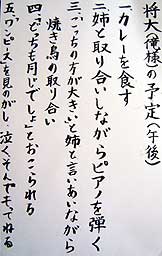 将大俺様の予定(午後)
一カレーを食す
二姉と取り合いしながらピアノを弾く
三「こっちの方が大きい」と姉と言いあいながら
焼き鳥の取り合い
四「どちも同じでしょ」とおこられる
五、ワンピースを見のがし、泣く。そんでもってねる